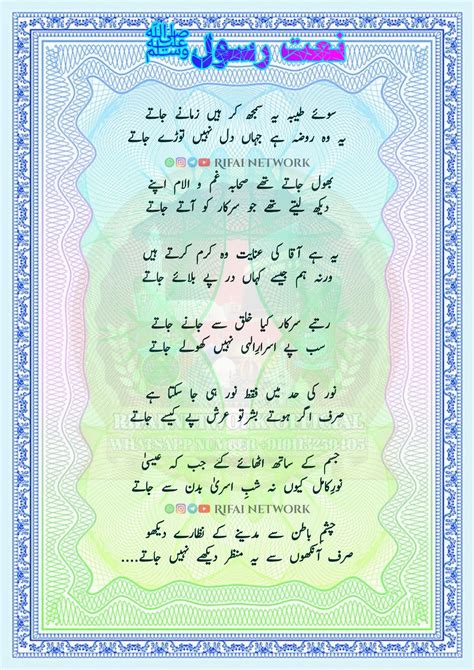 نعت رسول ﷺ
سوئے طیبہ یہ سمجھ کر ہیں زمانے جاتے
یہ وہ روضہ ہے جہاں دل نہیں توڑے جاتے
RIFAI NETWORK
بھول جاتے تھے صحابہ غم و الام اپنے
دیکھ لیتے تھے جو سرکار کو آتے جاتے
یہ ہے آقا کی عنایت وہ کرم کرتے ہیں
ورنہ ہم جیسے کہاں در پے بلائے جاتے
رتبے سرکار کیا خلق سے جانے جاتے
سب پے اسرارِالہی نہیں کھولے جاتے
نور کی حد میں فقط نور ہی جا سکتا ہے
صرف اگر ہوتے بشرتو عرش پے کیسے جاتے
جسم کے ساتھ اٹھائے گئے جب کہ عیسیٰ
نورِکامل کیوں نہ شبِ اسریٰ بدن سے جاتے
RIFAI NETWORK
چشمِ باطن سے مدینے کے نظارے دیکھو
صرف آنکھوں سے یہ منظر دیکھے نہیں جاتے....